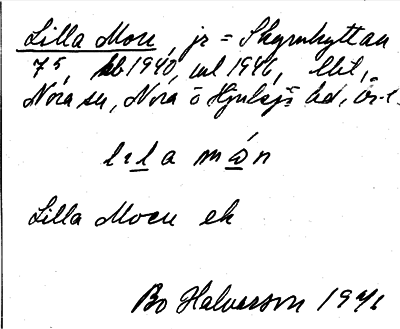 Lilla Moen, jr = Skrymhyttan
7⁵, kb 1940, uul 1946, lbil,
Nora sn, Nora o Hjulsjö bd, Ör-l.
lıla mån
Lilla Moen ek
Bo Halvarson 1946